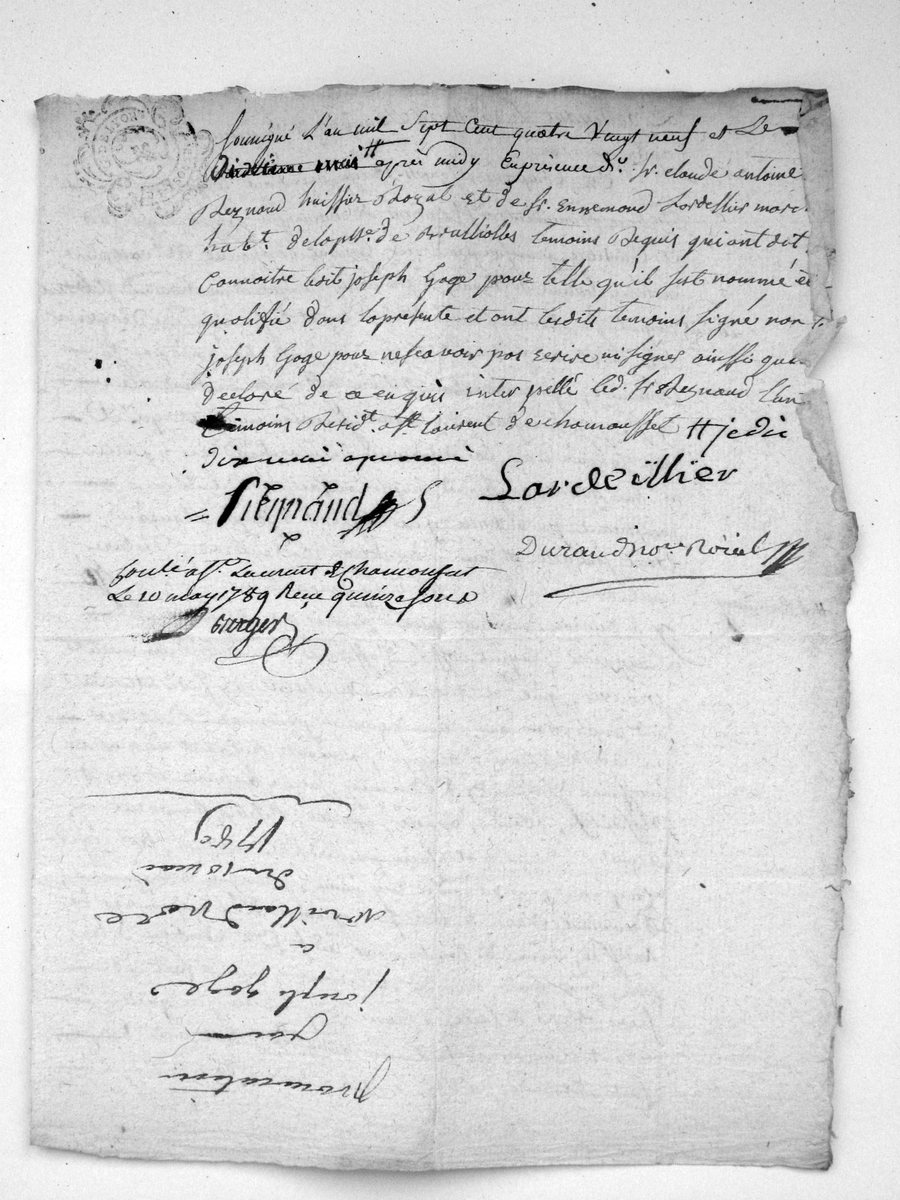 Soussigné L'an mil Sept Cent quatre Vingt neuf et Le
après midy En présence du. Sr. claude antoine
Reynaud huissier Royal et de Sr. Ennemond Lordeillier marc
habt. delapsse. de Brulliolles temoins Requis qui ont dit
Connoitre ledit joseph Goge pour telle qu'il sest nommé et
qualifié dans la présente et ont lesdits temoins signé non
joseph Goge pour ne scavoir pas ecrire ni signer ainssi que
declaré de ce enquis inter pellé led. sr Reynaud l'un
temoins Residt. a st. laurent de chamousset # je dis
dix mai aprouvé
= Reynaud
Lordeillier
Durand nore. Roial
Conle. a St. Laurent de Chamousset
Le 10 may 1789 Reçu quinze sous
procuration
pour
joseph goge
a
du 10 mai
1789